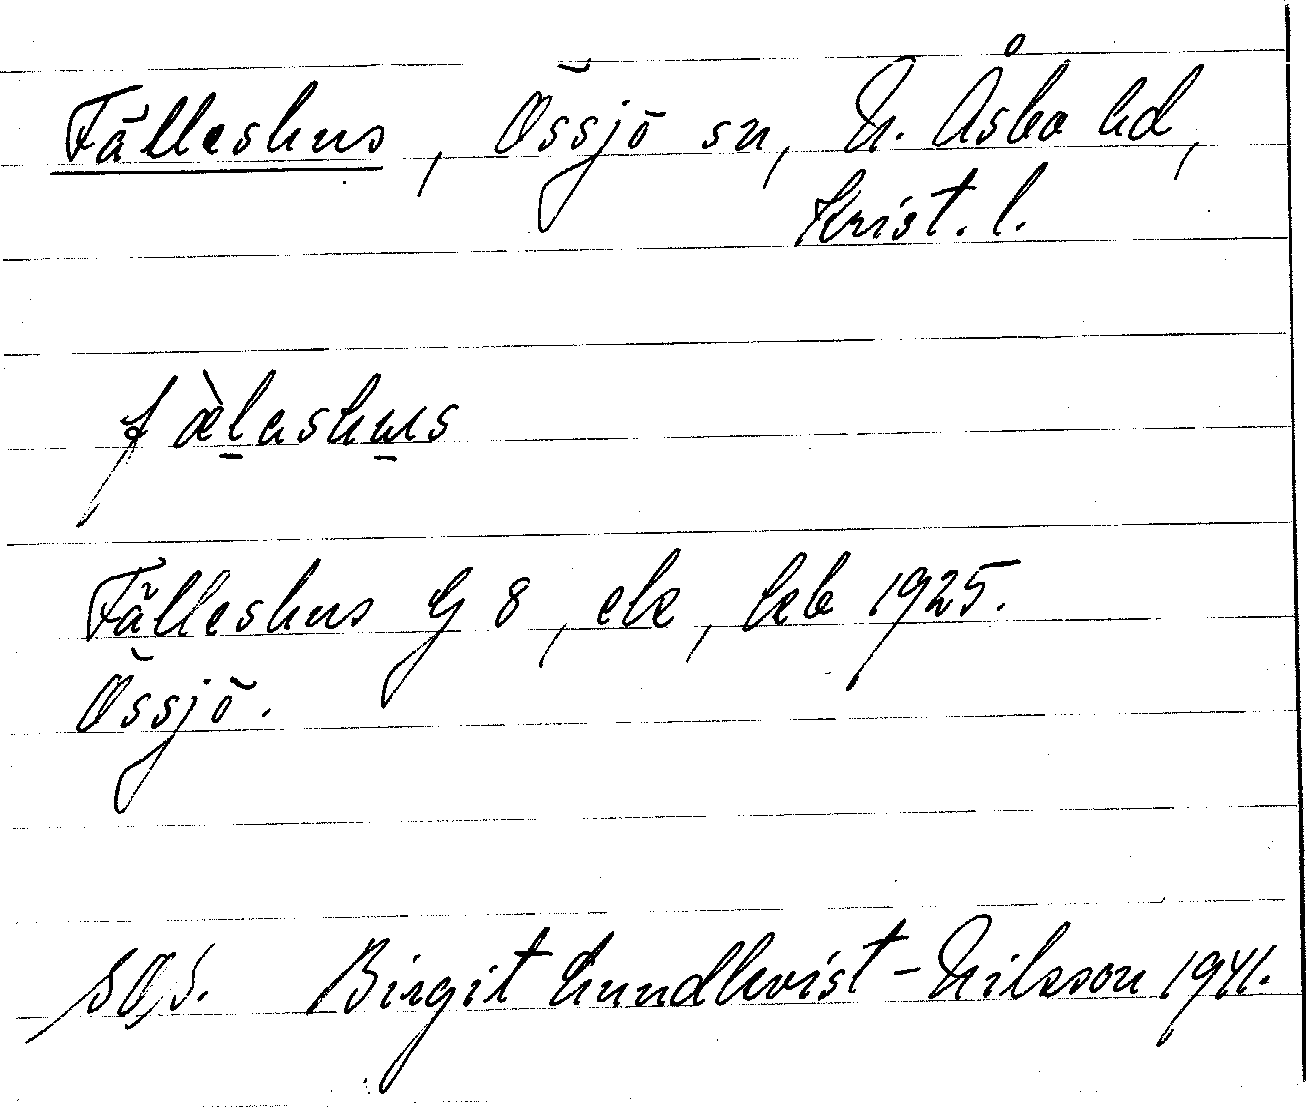 Fälleshus, Össjö sn, N. Åsbo hd,
Krist. l.
fæ̀l̲as​hu̲s
Fälleshus G 8, ek, keb 1925.
Össjö.
SOS. Birgit Lundkvist-Nilsson 1941.